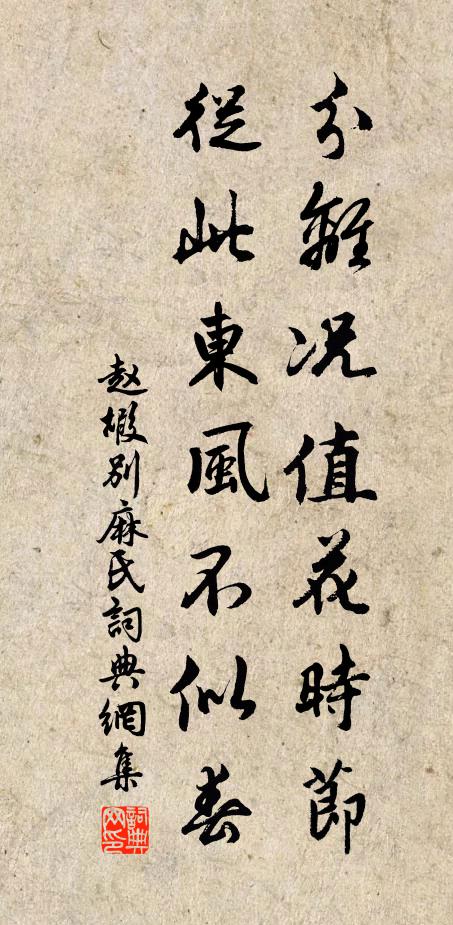 分離況值花時節
從此東風不似春
赵嘏別麻氏詞典網集
詞典网印